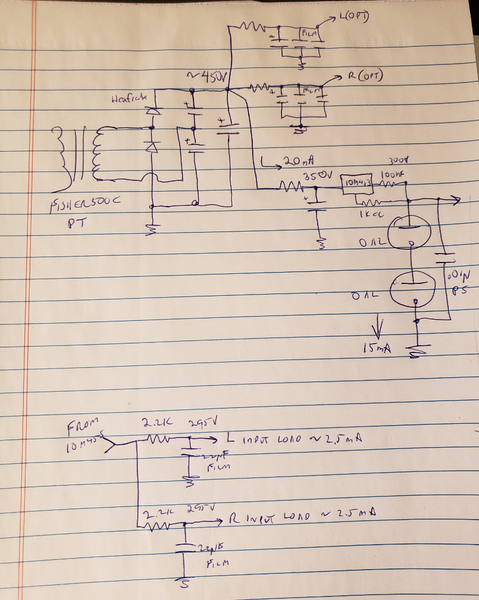 L (OPT)
FILM
~450V
R (OPT)
FILM
Hexfreds
+
+
+
L 20mA
FISHER 500C
PT
350V
300V
10M45S
100Ω
1K CC
OA2
OA2
.01µ
PS
15mA
FROM
10M45S
2.2K 295V
L INPUT LOAD ~ 2.5mA
22µF
FILM
2.2K 295V
R INPUT LOAD ~ 2.5mA
22µF
FILM